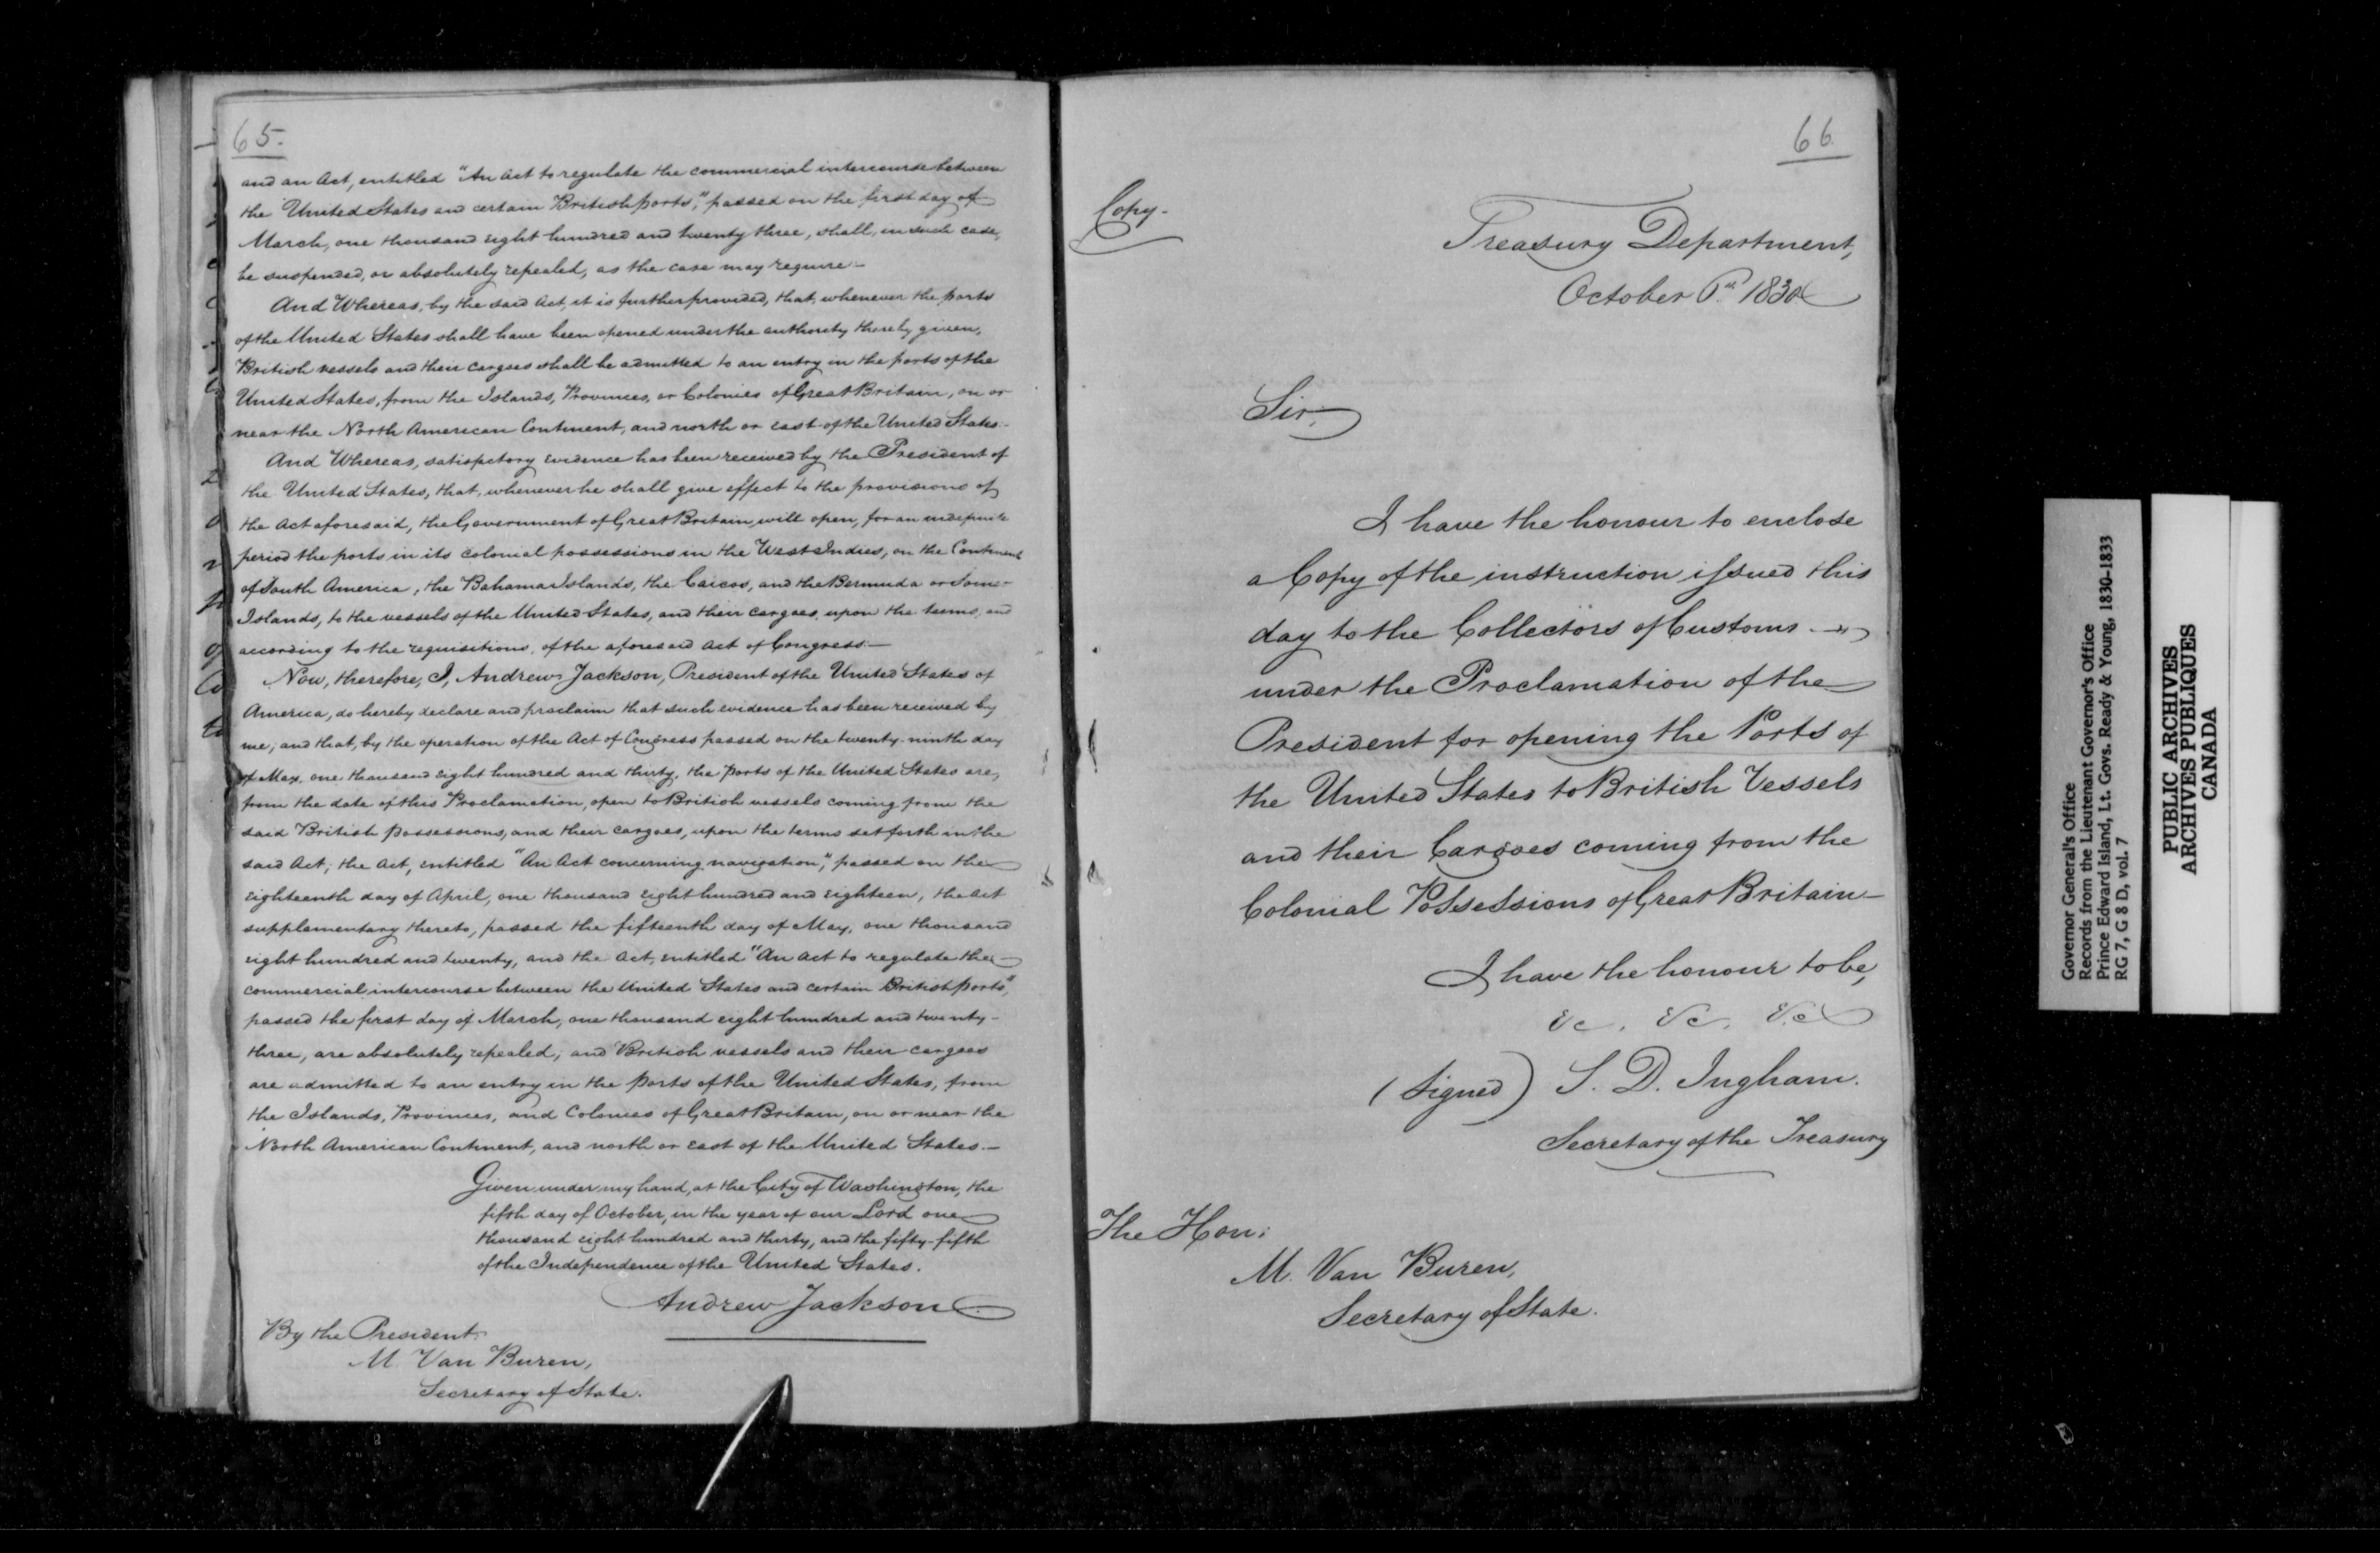 65.
and an Act, entitled "An Act to regulate the commercial intercourse between
the United States and certain British ports", passed on the first day of
March, one thousand eight hundred and twenty three, shall, in such case,
be suspended, or absolutely repealed, as the case may require—
And Whereas, by the said Act, it is further provided, that, whenever the ports
of the United States shall have been opened under the authority thereby given,
British vessels and their cargoes shall be admitted to an entry in the ports of the
United States, from the Islands, Provinces, or Colonies of Great Britain, on or
near the North American Continent, and north or east of the United States—
And Whereas, satisfactory evidence has been received by the President of
the United States, that, whenever he shall give effect to the provisions of
the Act aforesaid, the Government of Great Britain, will open, for an indefinite
period the ports in its colonial possessions in the West Indies, on the Continent
of South America, the Bahama Islands, the Caicos, and the Bermuda or Somer
Islands, to the vessels of the United States, and their cargoes, upon the terms, and
according to the requisitions, of the aforesaid Act of Congress—
Now, therefore, I, Andrew Jackson, President of the United States of
America, do hereby declare and proclaim that such evidence has been received by
me; and that, by the operation of the Act of Congress passed on the twenty-ninth day
of May, one thousand eight hundred and thirty, the ports of the United States are,
from the date of this Proclamation, open to British vessels coming from the
said British possessions, and their cargoes, upon the terms set forth in the
said Act; the Act, entitled "An Act concerning navigation", passed on the
eighteenth day of April, one thousand eight hundred and eighteen, the Act
supplementary thereto, passed the fifteenth day of May, one thousand
eight hundred and twenty, and the Act, entitled "An Act to regulate the
commercial intercourse between the United States and certain British ports",
passed the first day of March, one thousand eight hundred and twenty-
three, are absolutely repealed; and British vessels and their cargoes
are admitted to an entry in the ports of the United States, from
the Islands, Provinces, and Colonies of Great Britain, on or near the
North American Continent, and north or east of the United States.—
Given under my hand, at the City of Washington, the
fifth day of October, in the year of our Lord one
thousand eight hundred and thirty, and the fifty-fifth
of the Independence of the United States.
Andrew Jackson
By the President
M. Van Buren,
Secretary of State.
66
Copy.
Treasury Department,
October 6th 1830
Sir,
I have the honour to enclose
a Copy of the instruction issued this
day to the Collectors of Customs
under the Proclamation of the
President for opening the Ports of
the United States to British Vessels
and their Cargoes coming from the
Colonial Possessions of Great Britain—
I have the honour to be,
&c, &c, &c
(Signed) S. D. Ingham.
Secretary of the Treasury
The Hon:
M. Van Buren,
Secretary of State.
Governor General's Office
Records from the Lieutenant Governor's Office
Prince Edward Island, Lt. Govs. Ready & Young, 1830-1833
RG 7, G 8 D, vol. 7
PUBLIC ARCHIVES
ARCHIVES PUBLIQUES
CANADA